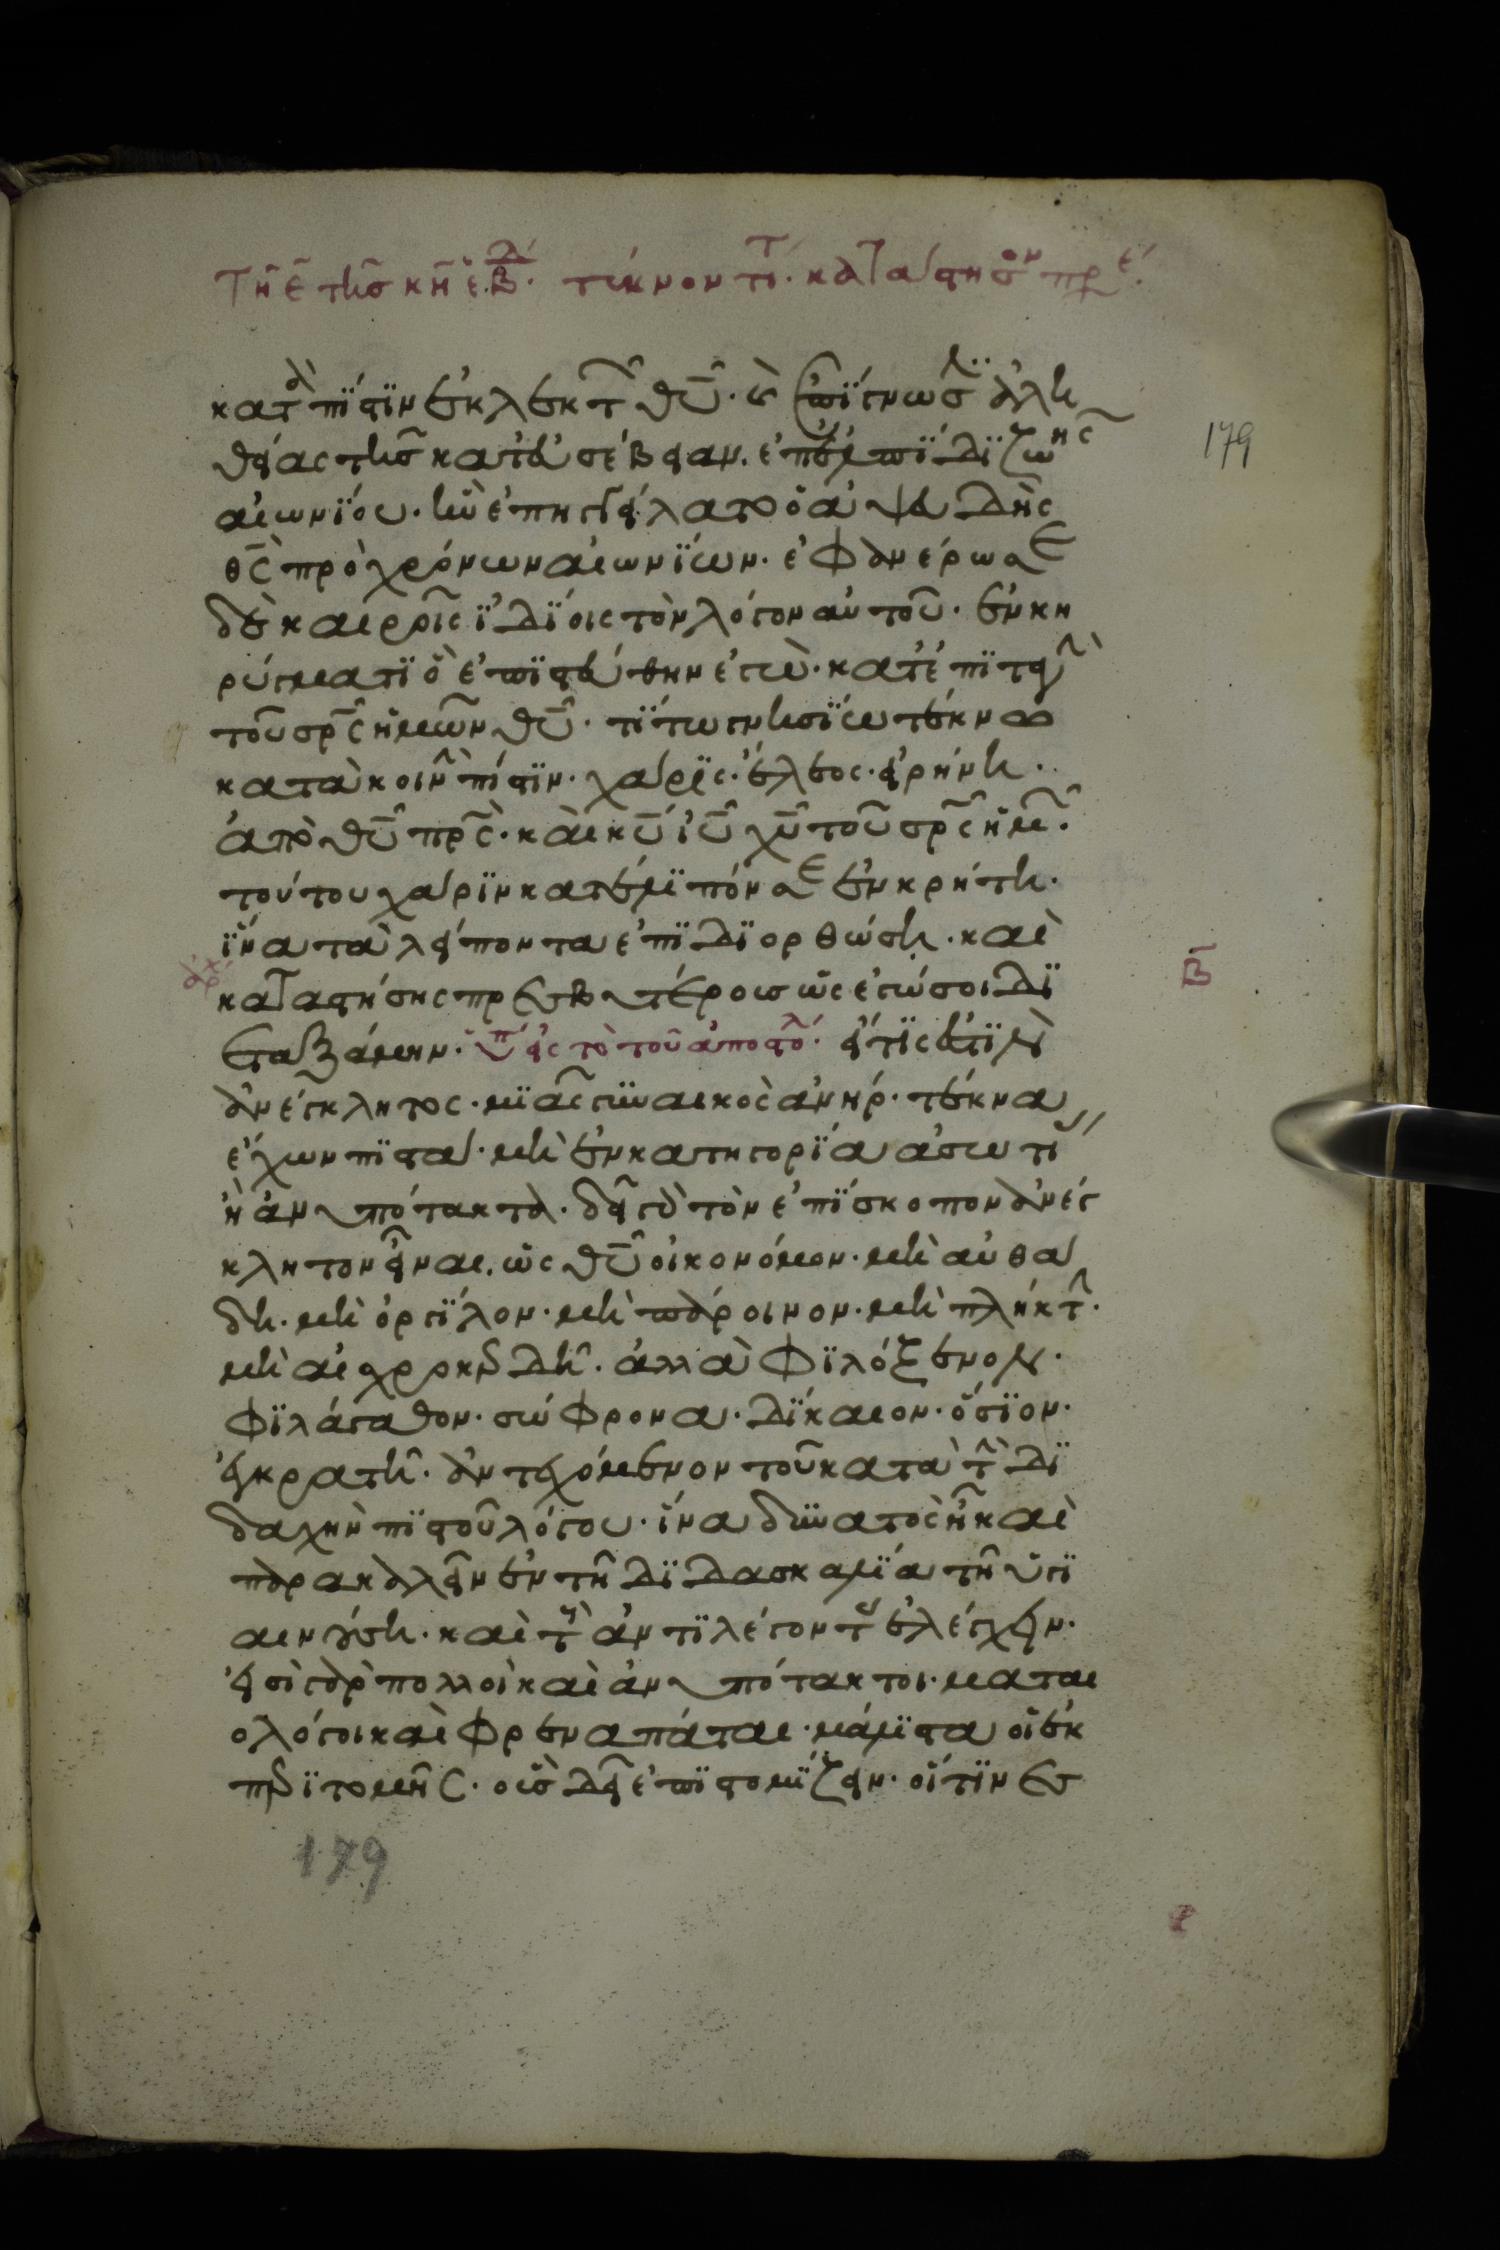 Τῇ ε̄ τῆσ κη ἑβδ. τέκνον τί. κατάστησον πρε
κατὰ πίστϊν ἐκλεκτῶν θῦ. καὶ ἐπίγνωσϊν ἀλη
θείας τῆσ κατ ἐυσέβειαν. ἐπ ἐλπίδϊ ζωῆς
αἰωνίου. ἣν ἐπηγγείλατο ὁ ἀψευδὴς
θς̄ πρὸ χρόνων αἰωνίων. ἐφανέρωσε
δὲ καιροῖς ἰδίοις τὸν λόγον αὐτοῦ. ἐν κη
ρύγματϊ ὃ ἐπιστεύθην ἐγὼ. κατ ἐπιταγὴν
τοῦ σρς ἡμῶν θῦ. τίτω γνησίω τέκνω
κατὰ κοινὴν πίστϊν. χάρϊς. ἔλεος. εἰρήνη.
ἀπὸ θῦ πρς. καὶ κῦ ἰῦ χῦ τοῦ σρς ἡμῶν.
τούτου χάρϊν κατέλϊπόν σε ἐν κρήτη.
ἵνα τὰ λείποντα ἐπιδϊορθώση. καὶ
καταστήσης πρεσβυτέρους ὡς ἐγώ σοι δϊ
εταξάμην. ὑπ εἰς τὸ τοῦ ἀποστόλ. εἴ τϊς ἐστϊν
ἀνέγκλητος. μϊᾶς γυναικὸς ἀνήρ. τέκνα
ἔχων πιστά. μὴ ἐν κατηγορία ἀσωτί
ἢ ἀνυπότακτα. δεῖ γὰρ τὸν ἐπίσκοπον ἀνέγ
κλητον εἶναι. ὡς θῦ οἰκονόμον. μὴ αὐθά
δη. μὴ ὀργίλον. μὴ πάροινον. μὴ πλήκτην.
μὴ αἰσχροκερδῆ. ἀλλὰ φϊλόξενον.
φϊλάγαθον. σώφρονα. δίκαιον. ὅσϊον.
ἐγκρατῆ. ἀντεχόμενον τοῦ κατὰ τὴν δϊ
δαχὴν πιστοῦ λόγου. ἵνα δυνατὸς ἦ καὶ
παρακαλεῖν ἐν τῆ δϊδασκαλία τῆ ὑγϊ
αινούση. καὶ τοὺς ἀντιλέγοντας ἐλέγχειν.
εἰσὶ γὰρ πολλοὶ καὶ ἀνυπότακτοι. μαται
ολόγοι καὶ φρεναπάται. μάλϊστα οἱ ἐκ
περιτομῆς. οὓσ δεῖ ἐπιστομίζειν. οἵτϊνεσ
β̄
179
179